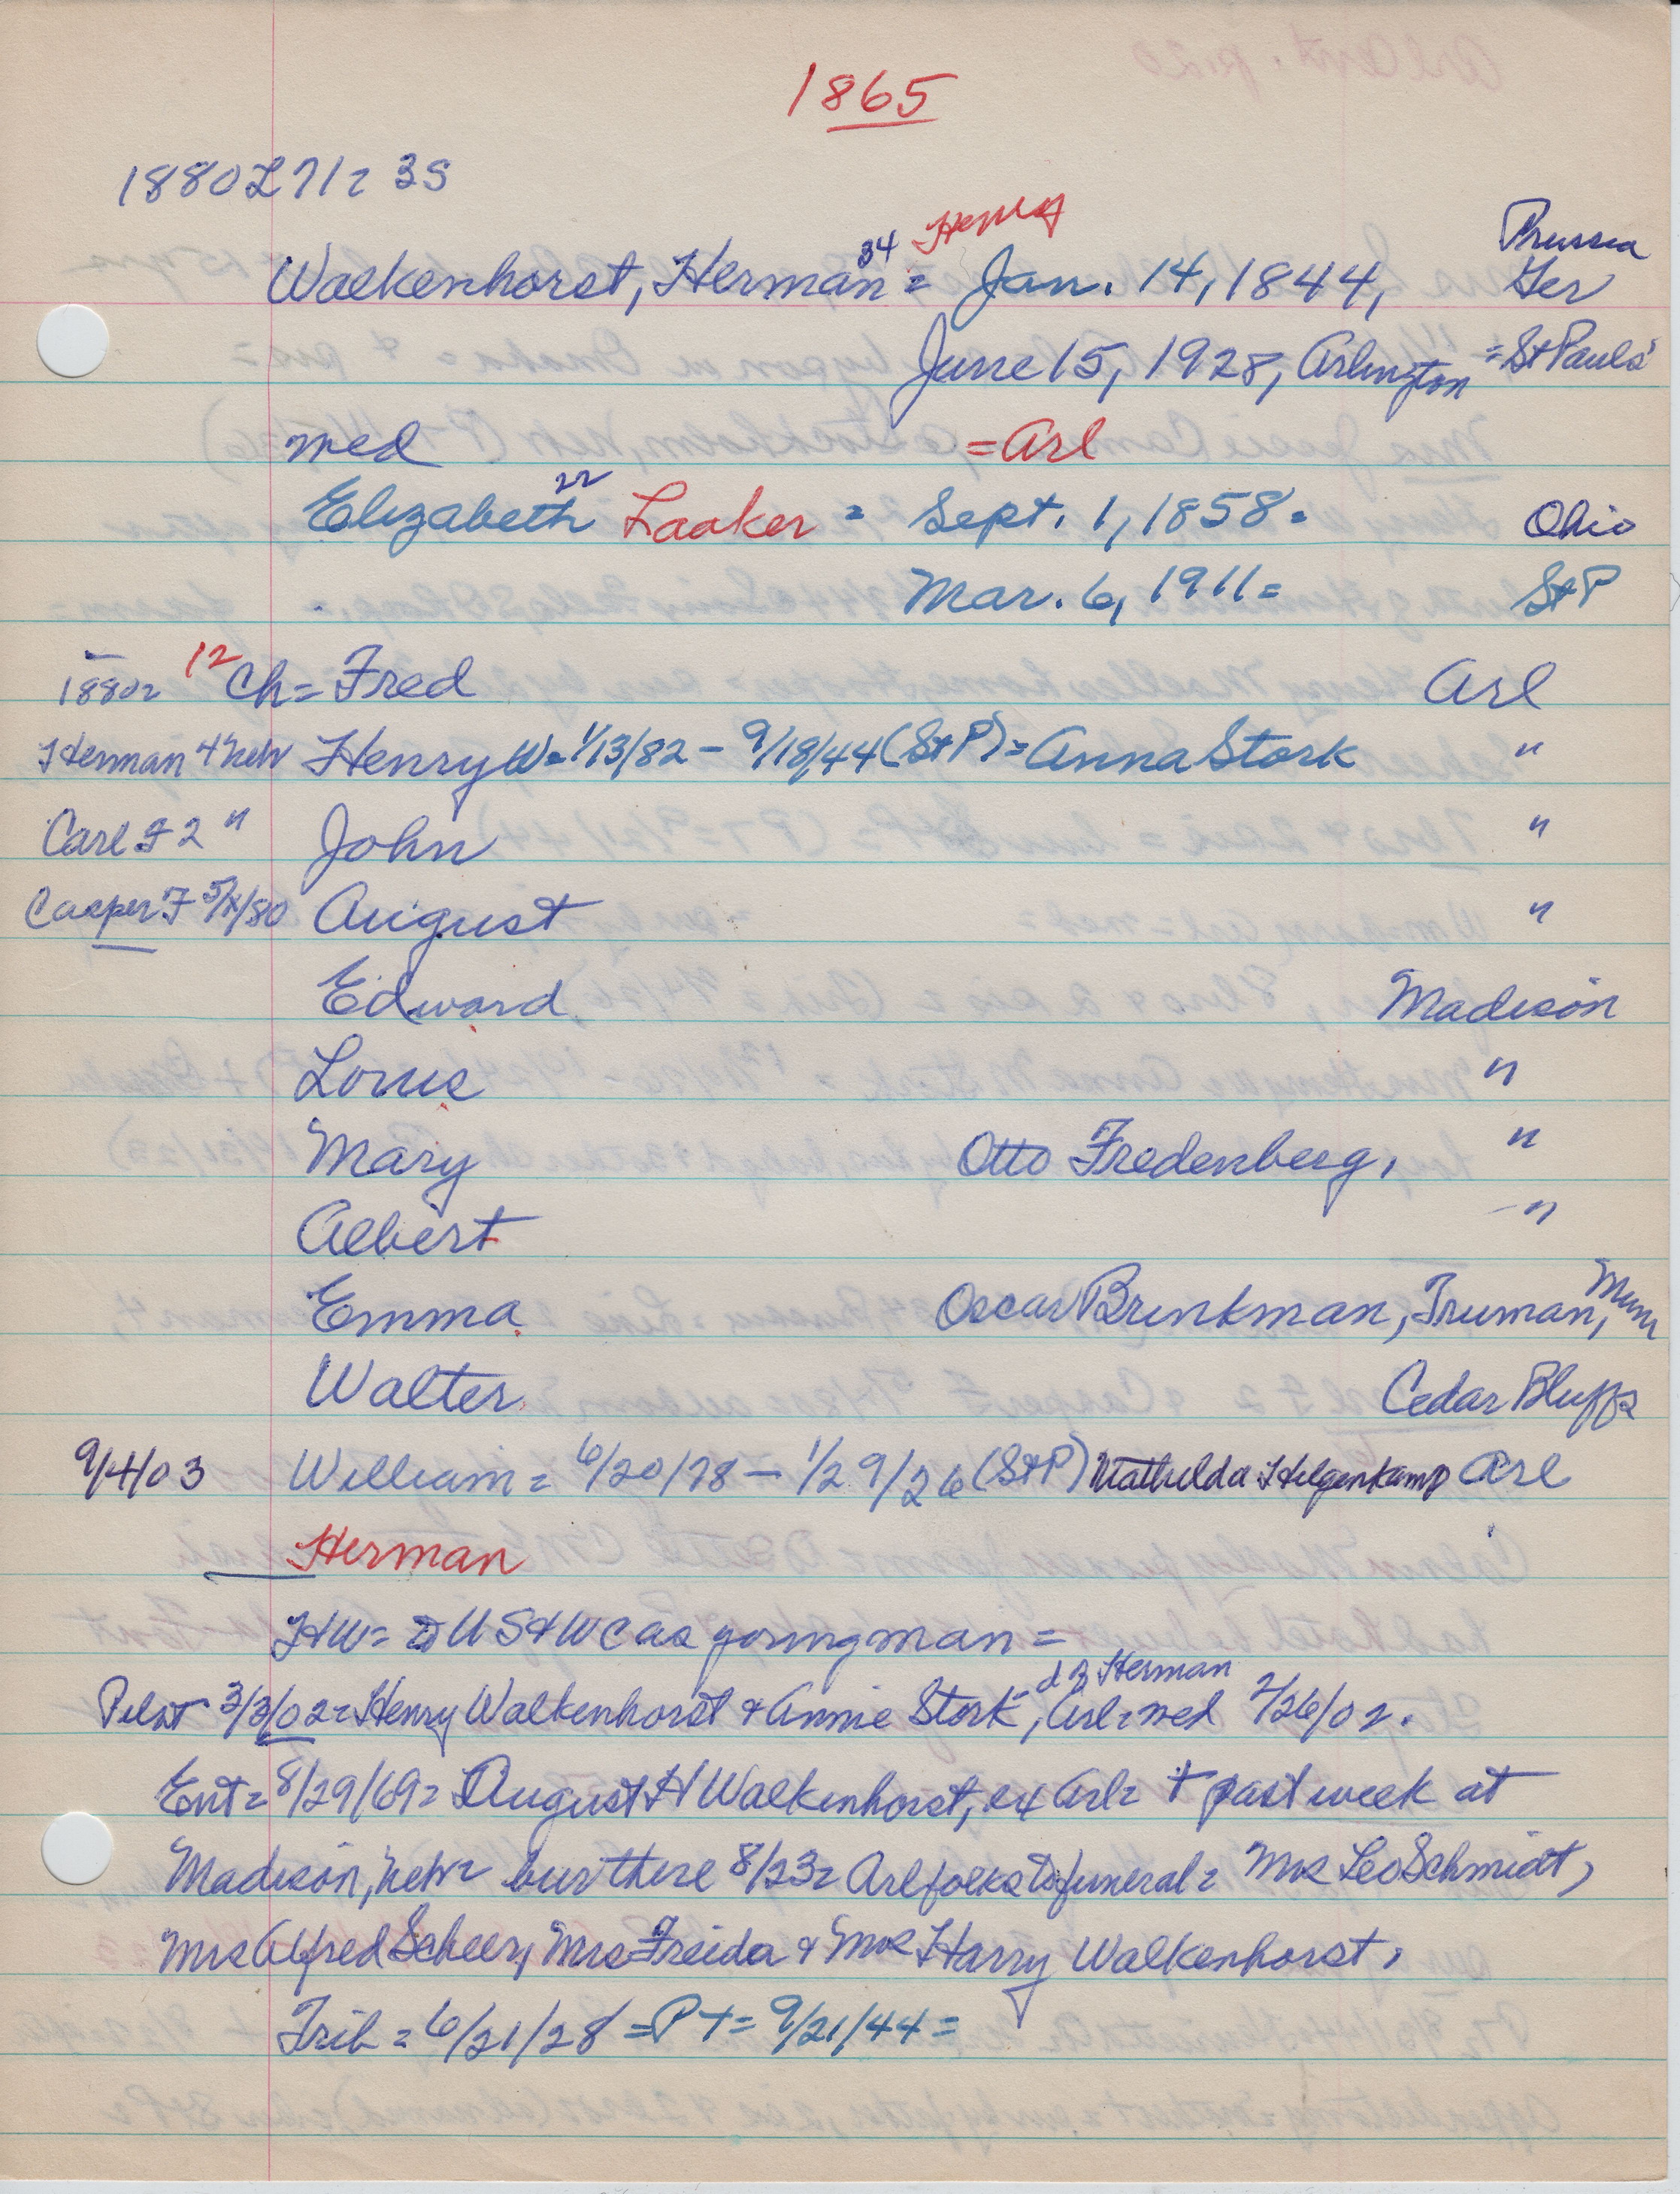 1865
1880 L 71 = 3S
Walkenhorst, Herman 34 = Henry Jan. 14, 1844, Prussia Ger
June 15, 1928, Arlington = St Pauls'
med = Arl
Elizabeth 22 Laaker = Sept. 1, 1858 = Ohio
Mar. 6, 1911 = St P
1880= 12 Ch = Fred Arl
Herman 4 Neb Henry W = 1/13/82 - 9/18/44 (St P) = Anna Stork "
Carl F 2 " John "
Casper F 5/80 August "
Edward Madison
Louis "
Mary Otto Fredenberg, "
Albert "
Emma Oscar Brinkman, Truman, Minn
Walter Cedar Bluffs
9/4/03 William = 6/20/78 - 1/29/26 (St P) Mathilda Hilgenkamp Arl
Herman
HW = US + WC as young man =
Pilot 3/3/02 = Henry Walkenhorst + Annie Stork, d of Herman, Arl = med 2/26/02.
Ent = 8/29/69 = August H Walkenhorst, ex Arl = + past week at
Madison, Neb = bur there 8/23 = Arl folks to funeral = Mrs Leo Schmidt,
Mrs Alfred Scheer, Mrs Freida + Mrs Harry Walkenhorst,
Trib = 6/21/28 = PT = 9/21/44 =